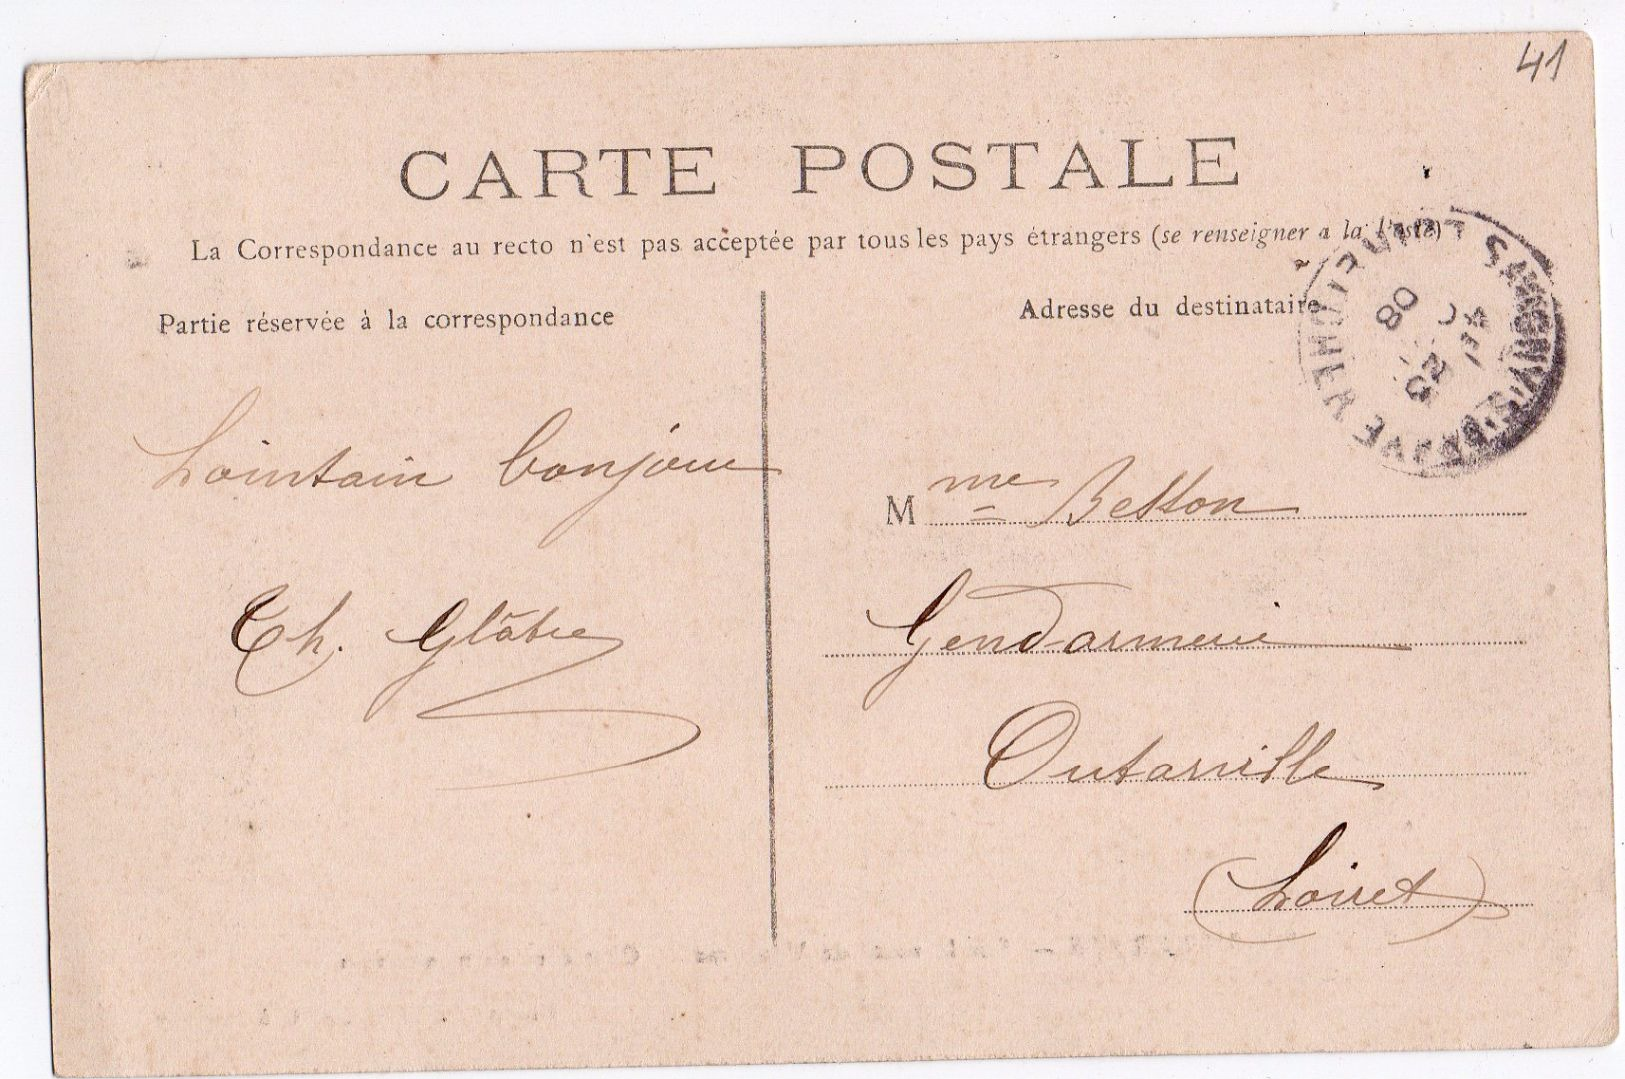 41
CARTE POSTALE
La Correspondance au recto n'est pas acceptée par tous les pays étrangers (se renseigner a la Poste)
Partie réservée à la correspondance
Adresse du destinataire
Lointain bonjour
Th. Glâtre
Mme Betton
Gendarmerie
Outarville
(Loiret)
SAVIGNY S/BRAYE
08